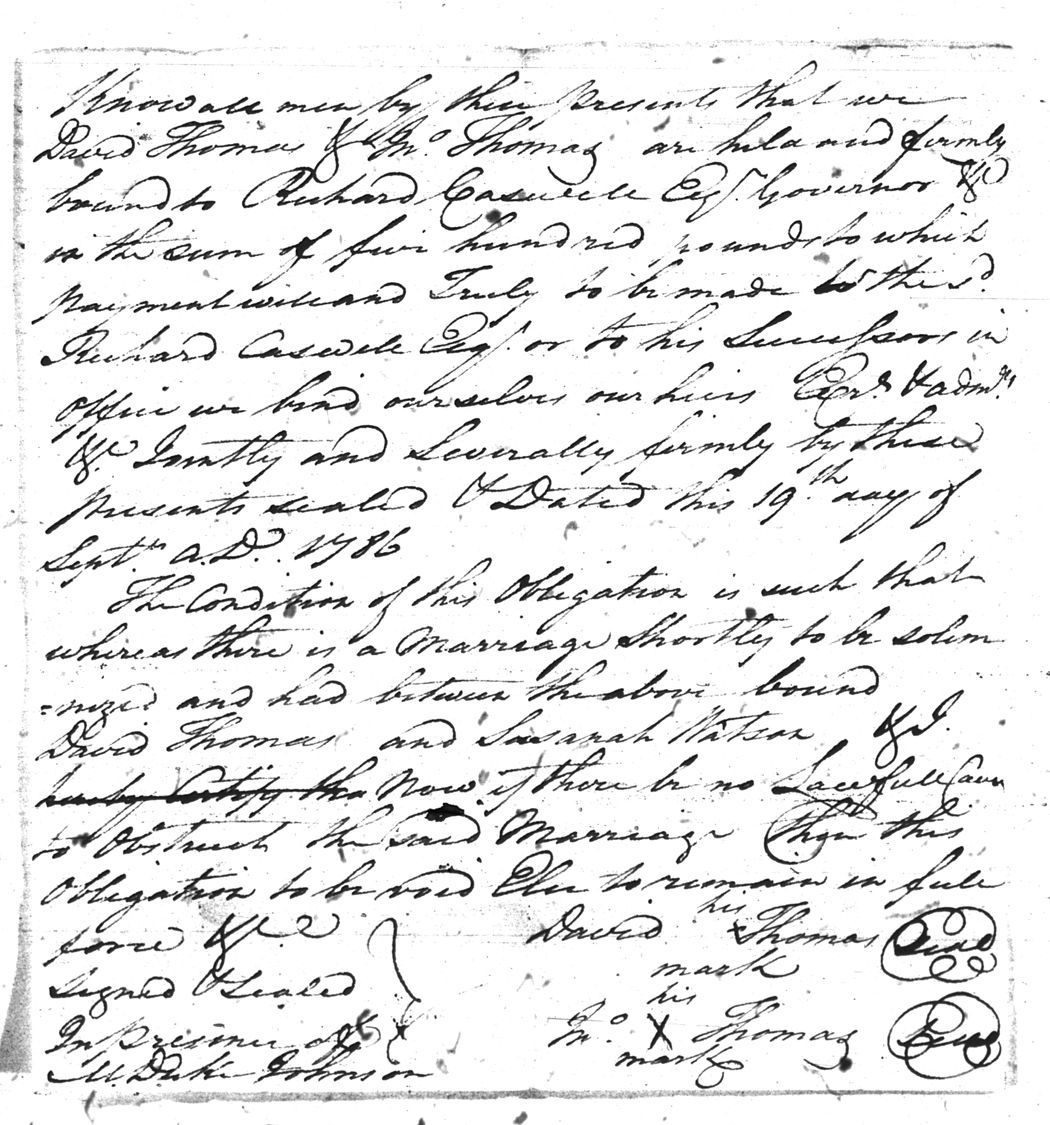 Know all men by these presents that we
David Thomas & Jno. Thomas are held and firmly
bound to Richard Caswell Esqr. Governor &c
in the sum of five hundred pounds to which
payment well and Truly to be made to the sd.
Richard Caswell Esqr. or to his Successors in
office we bind ourselves our heirs Exrs. & admrs.
&c. Jointly and Severally firmly by these
presents sealed & Dated this 19th. day of
Septr. A.D. 1786
The Condition of this Obligation is such that
whereas there is a Marriage Shortly to be solem
=nized and had between the above bound
David Thomas and Susanah Watson &
hereby Certify tha Now if there be no Lawfull Caus
to Obstruct the said Marriage Then this
Obligation to be void Else to remain in full
force &c
David his Thomas Seal
mark
Signed & Sealed
In Presence of
Jno. his X Thomas Seal
mark
M. Duke Johnson